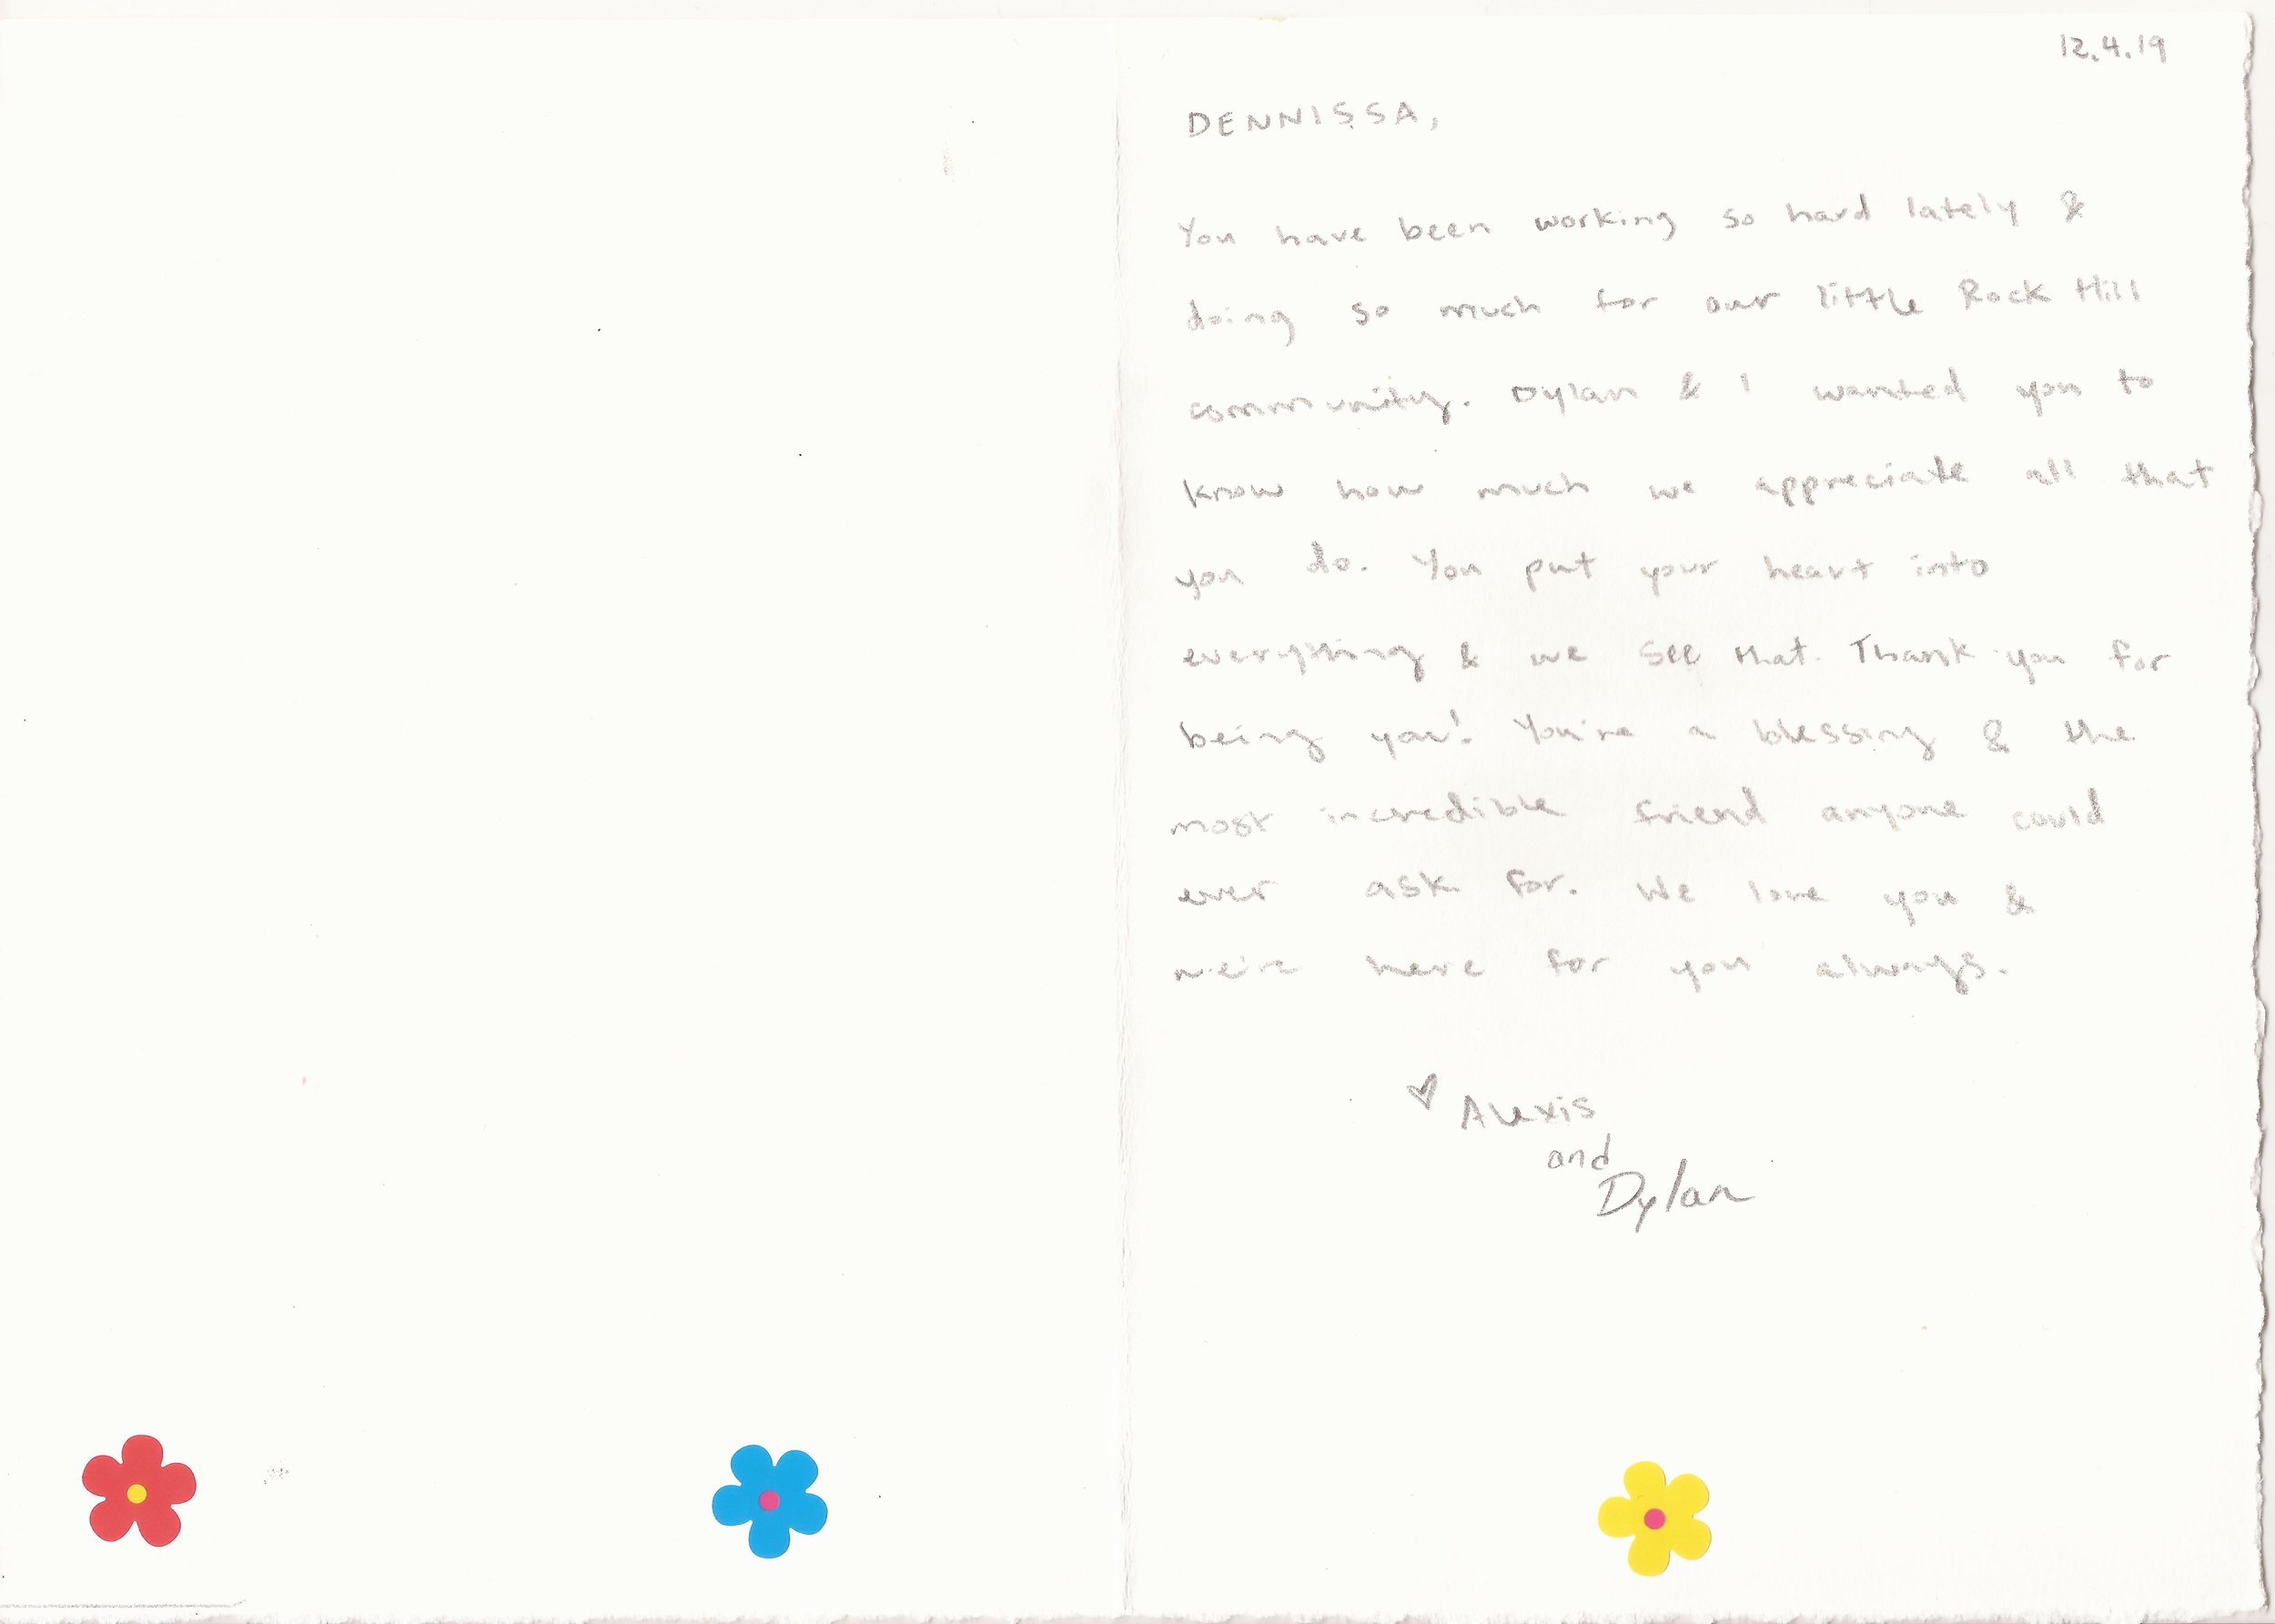 12.4.19
DENNISSA,
You have been working so hard lately &
doing so much for our little Rock Hill
community. Dylan & I wanted you to
know how much we appreciate all that
you do. You put your heart into
everything & we see that. Thank you for
being you! You're a blessing & the
most incredible friend anyone could
ever ask for. We love you &
we're here for you always.
♥ Alexis
and
Dylan